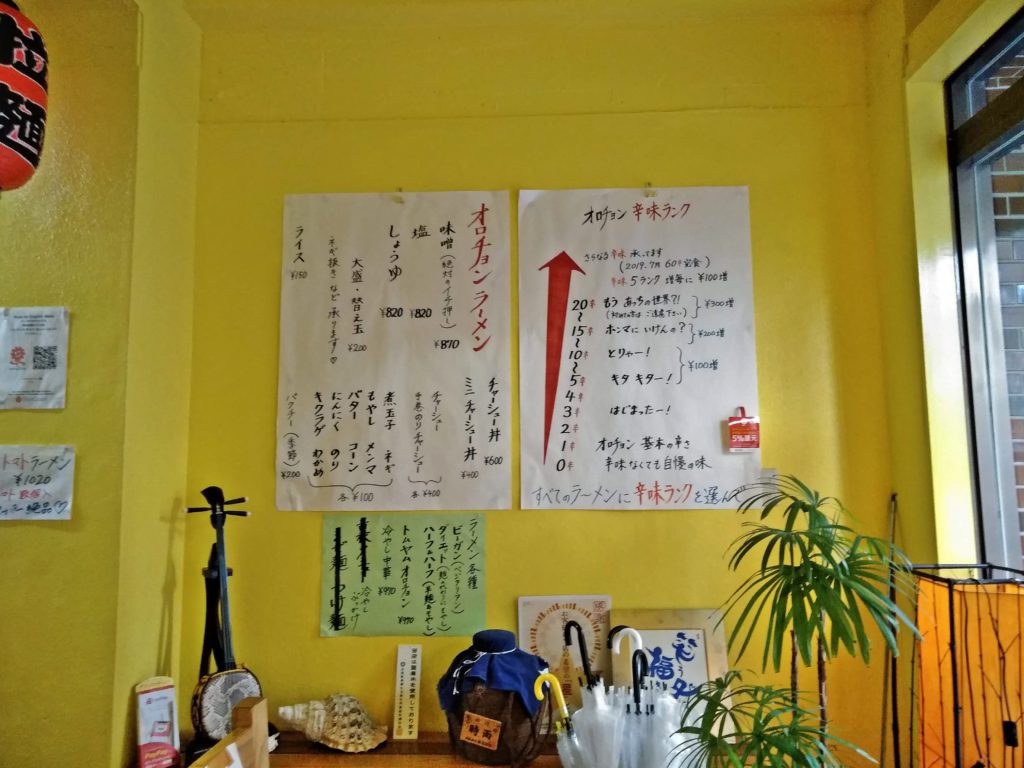 拉麺
オロチョン ラーメン
味噌 (絶対のイチ押し) ¥870
塩 ¥820
しょうゆ ¥820
大盛・替え玉 ¥200
ネギ抜きなど承ります♡
ライス ¥150
チャーシュー丼 ¥600
ミニチャーシュー丼 ¥400
チャーシュー
手巻のりチャーシュー
各¥400
煮玉子 ネギ
もやし メンマ
バター コーン
にんにく のり
キクラゲ わかめ
各¥100
パクチー (季節) ¥200
オロチョン 辛味ランク
さらなる辛味 承ってます
(2019.7月 60辛完食)
辛味 5ランク 増毎に ¥100増
20辛 もう あっちの世界?! ¥300増
〜
15辛 ホンマに いけんの? ¥200増
〜
10辛 とりゃー!
〜
5辛 キタ キター! ¥100増
4辛
3辛 はじまったー!
2辛
1辛 オロチョン 基本の辛さ
0辛 辛味なくても自慢の味
すべてのラーメンに辛味ランクを選んで
5%還元
トマトラーメン
¥1020
ラーメン各種
ビーガン(ベジタリアン)
ハーフ&ハーフ(半麺&もやし)
トムヤムオロチョン ¥970
冷やし中華 ¥970
冷やし
ぶっかけ
時雨
笑う
福
PayPay